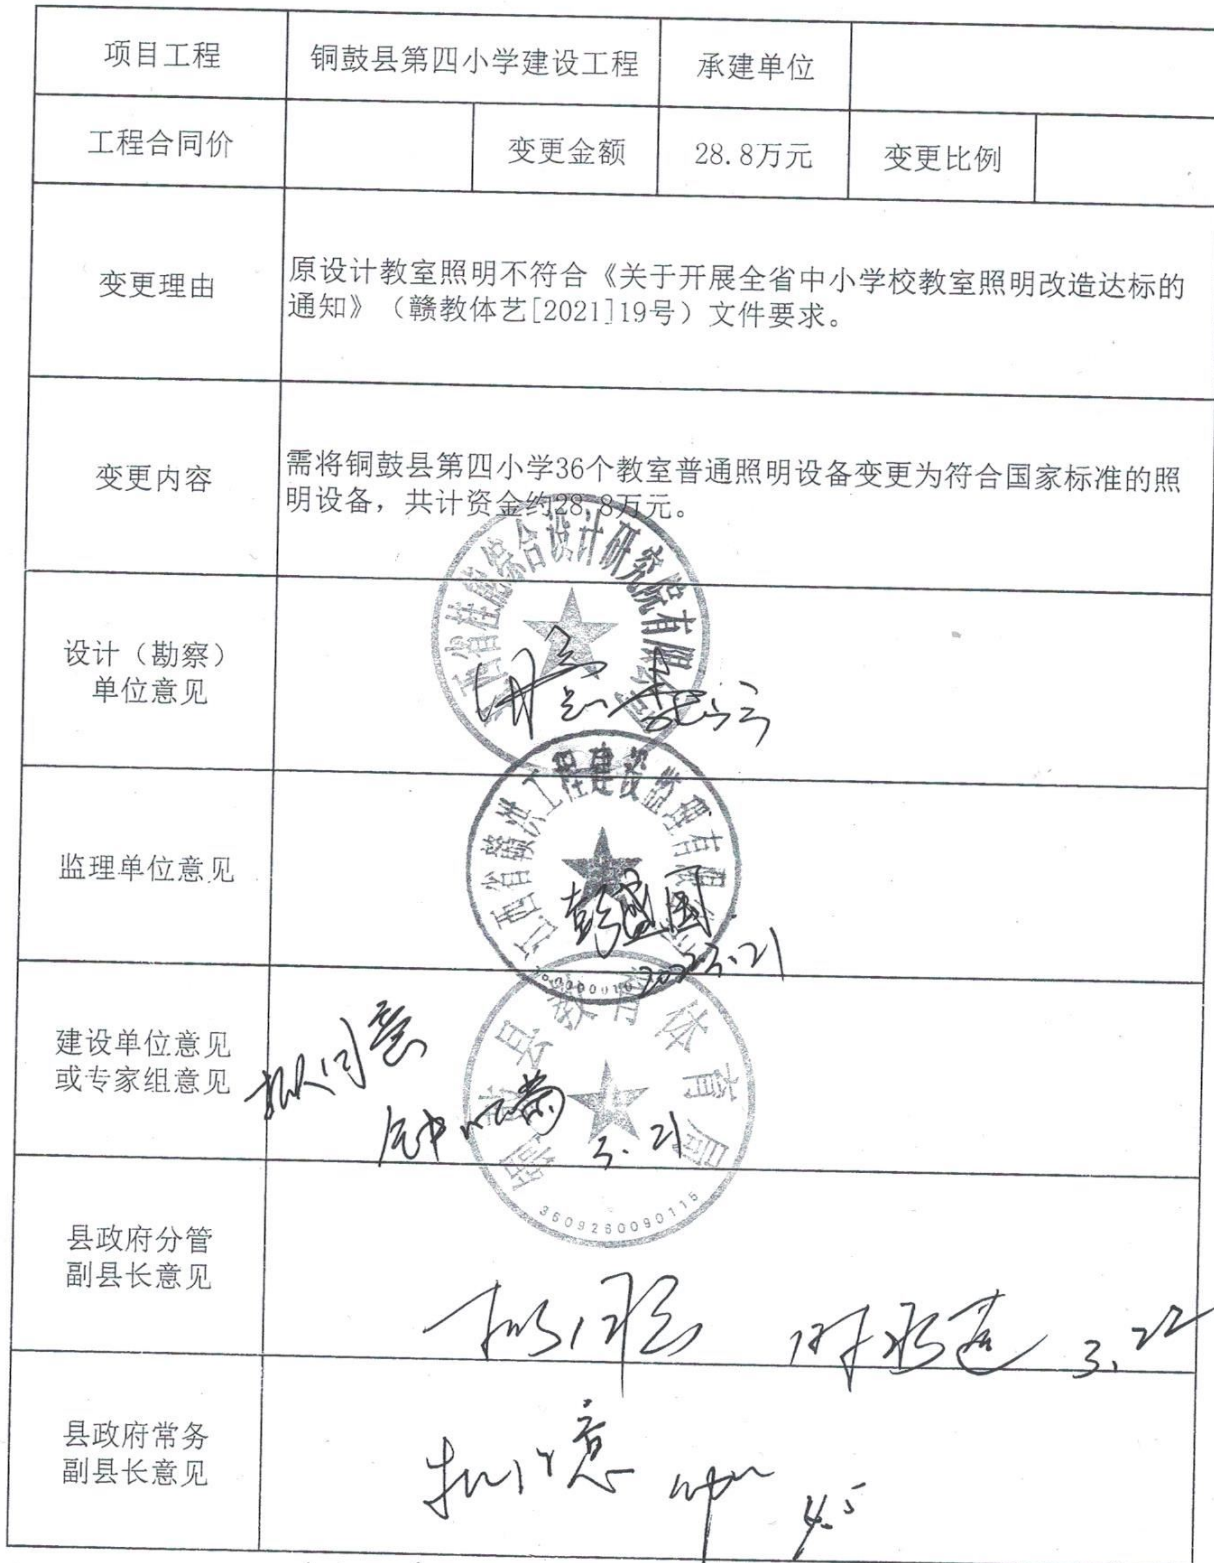 项目工程 铜鼓县第四小学建设工程 承建单位
工程合同价 变更金额 28.8万元 变更比例
变更理由
原设计教室照明不符合《关于开展全省中小学校教室照明改造达标的
通知》（赣教体艺[2021]19号）文件要求。
变更内容
需将铜鼓县第四小学36个教室普通照明设备变更为符合国家标准的照
明设备，共计资金约28.8万元。
设计（勘察）
单位意见
综合设计研究院有限
同意
监理单位意见
江西省赣洪工程建设监理有限
彭盛国
2022.3.21
建设单位意见
或专家组意见
拟同意
3.21
鼓县教育体育局
3609260090115
县政府分管
副县长意见
拟同意
3.22
县政府常务
副县长意见
拟同意
4.5